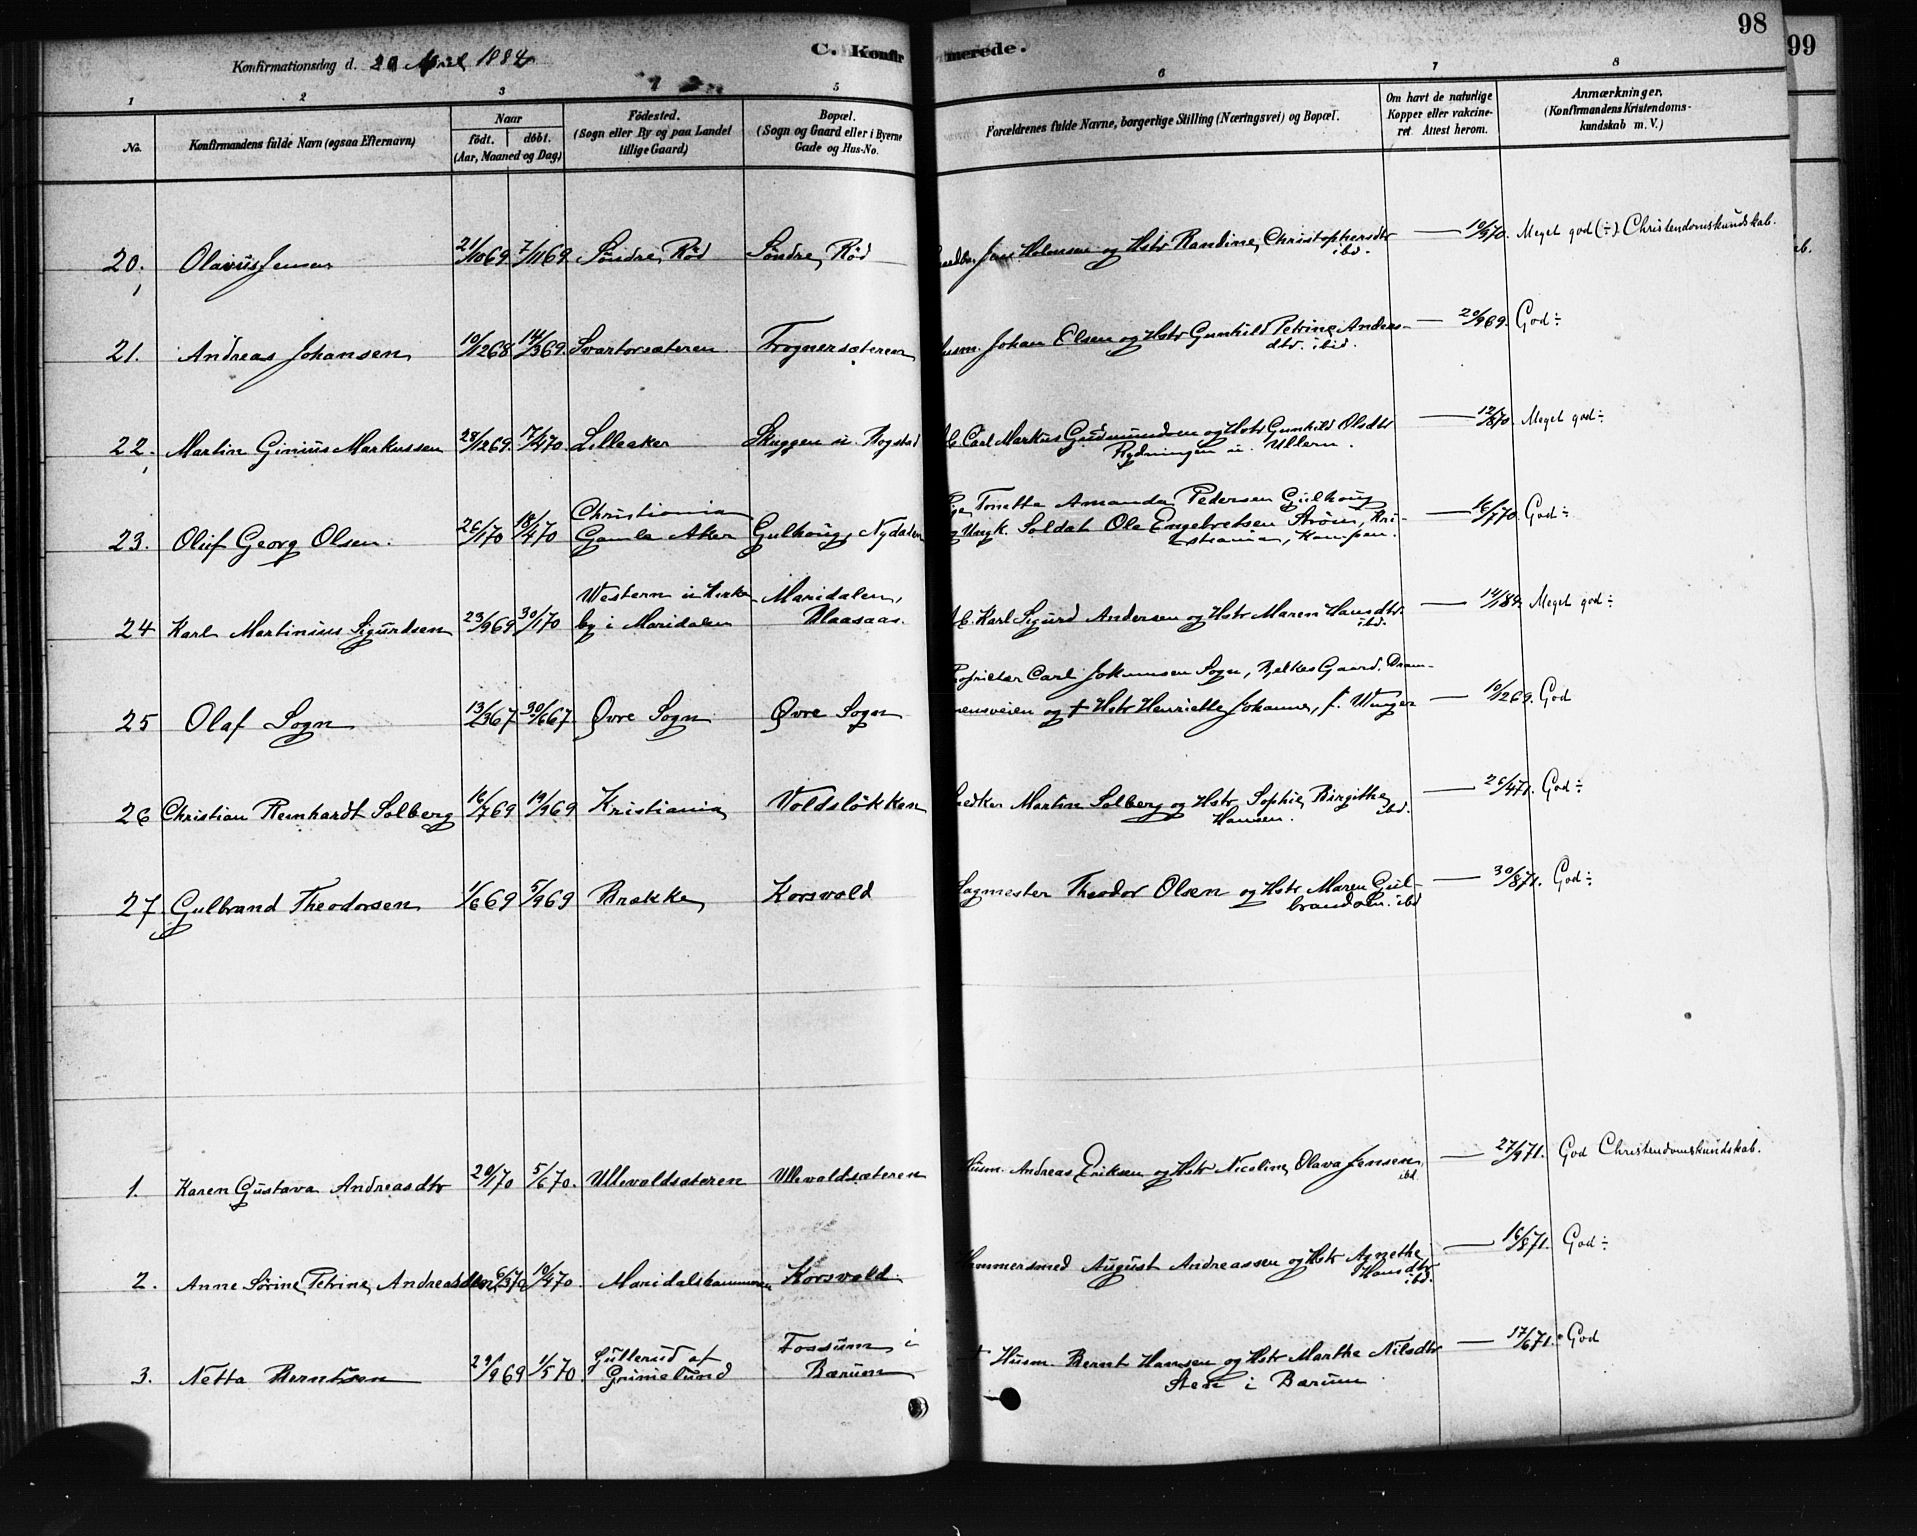 98
99
Konfirmationsdag d. 20 April 1884
C. Konfirmerede.
1 2 3 5 6 7 8
No. Konfirmandens fulde Navn (ogsaa Efternavn) Naar født. døbt. (Aar, Maaned og Dag) Fødested. (Sogn eller By og paa Landet tillige Gaard) Bopæl. (Sogn og Gaard eller i Byerne Gade og Hus-No. Forældrenes fulde Navne, borgerlige Stilling (Næringsvei) og Bopæl. Om havt de naturlige Kopper eller vakcineret. Attest herom. Anmærkninger. (Konfirmandens Kristendomskundskab m. V.)
20. Olavus Jensen 21/10 69 7/11 69 Søndre Rød Søndre Rød Jens Holmsen og Hstr Randine Christophersdtr ibd. — 10/9 70. Meget god (÷) Christendomskundskab.
21. Andreas Johansen 10/12 68 14/3 69. Svartorsæteren Frognersæteren Husm. Johan Olsen og Hstr Gunhild Petrine Andersdtr. ibid. — 20/9 69. God ÷
22. Martin Ginius Markussen 28/12 69. 17/4 70. Lilleaker Skuggen u. Bogstad Carl Markus Gudmundsen og Hstr Gunhild Olsdtr Rydningen u. Ullern. — 12/8 70. Meget god ÷
23. Oluf Georg Olsen. 26/1 70 18/4 70 Christiania Gamle Aker Gulhoug, Nydalen Pige Tonette Amanda Pedersen Gulhoug og Ungk. Soldat Ole Engebretsen Strøm, Kristiania, Kampen. — 16/7 70. God ÷
24 Karl Martinius Sigurdsen 23/9 69 30/1 70 Western u Kirkeby i Maridalen Maridalen, Blaasaas. Karl Sigurd Andersen og Hstr Maren Hansdtr. ibd. — 14/1 84. Meget god ÷
25 Olaf Sogn 13/3 67 30/6 67 Øvre Sogn Øvre Sogn Proprietær Carl Johannsen Sogn, Bjelkes Gaard. Drammensveien og † Hstr Henriette Johanne, f. Winger — 10/12 69. God
26 Christian Reinhardt Solberg 16/7 69 19/9 69 Kristiania Voldsløkken Snedker Martin Solberg og Hstr Sophie Birgitthe Hansen. ibd. — 26/4 71. God ÷
27 Gulbrand Theodorsen 1/6 69 5/9 69 Brække Korsvold Sagmester Theodor Olsen og Hstr Maren Gulbrandsen. ibd — 30/8 71. God ÷
1. Karen Gustava Andreasdtr 20/1 70 5/6 70. Ullevoldsæteren Ullevoldsæteren Husm. Andreas Eriksen og Hstr Nicoline Olava Jensen ibd. — 27/9 71. God Christendomskundskab.
2. Anne Sørine Petrine Andreasdtr 6/3 70 10/4 70. Maridalshammeren Korsvold. Hammersmed August Andreassen og Hstr Agnethe Hansdtr ibd. — 16/8 71. God ÷
3. Netta Berntsen 29/9 69 1/5 70 Gullerud af Grimelund Fossum i Bærum † Husm. Bernt Hansen og Hstr Marthe Nilsdtr Sten i Bærum — 17/6 71. God